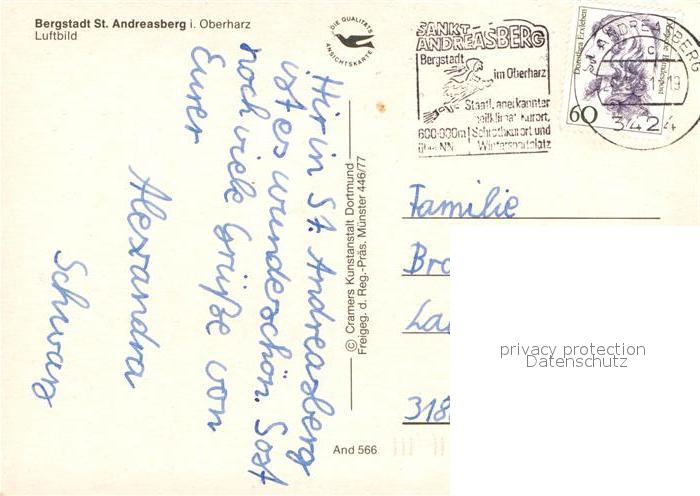 Bergstadt St. Andreasberg i. Oberharz
Luftbild
DIE QUALITÄTS
ANSICHTSKARTE
Hir in St. Andreasberg
ist es wunderschön. Sost
noch viele Grüße von
Eurer
Alexandra
Schwarz
© Cramers Kunstanstalt Dortmund
Freigeg. d. Reg.-Präs. Münster 446/77
And 566
SANKT
ANDREASBERG
Bergstadt
im Oberharz
Staatl. anerkannter
heilklimat. Kurort,
600-900m Schrothkurort und
über NN Wintersportplatz
Dorothea Erxleben
Deutsche Bundespost
60
ST ANDREASBERG
c
3424
Familie
Bro
La
318
privacy protection
Datenschutz